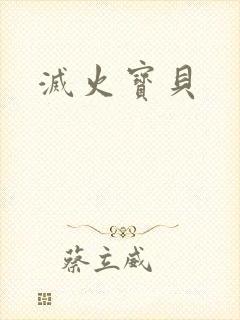 滅火寶貝
蔡立威